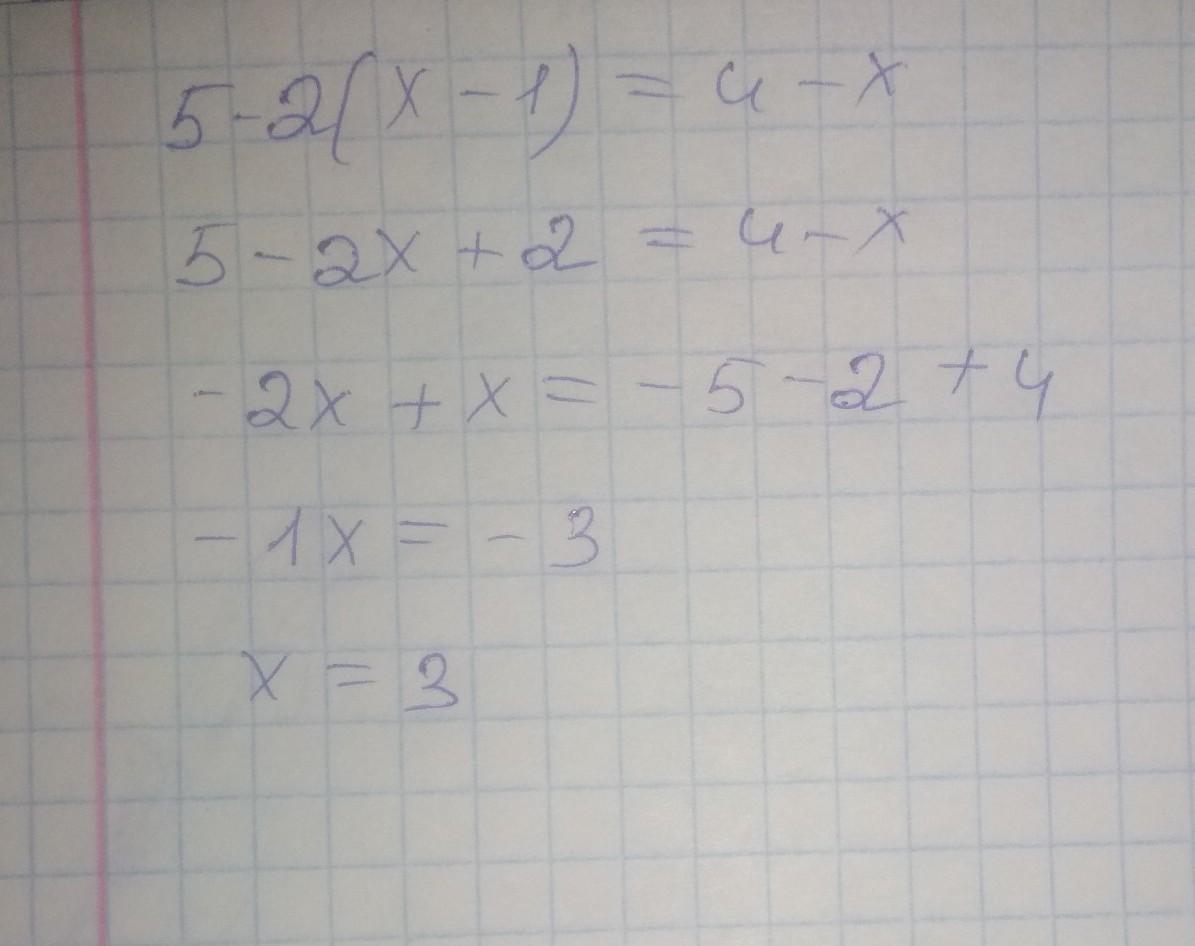 5-2(x-1) = 4-x
5-2x+2 = 4-x
-2x+x=-5-2+4
-1x=-3
x=3